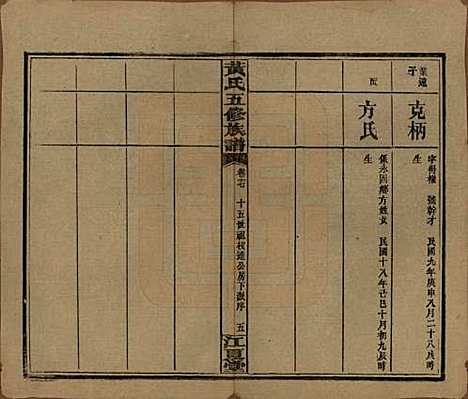 業遠子
克柄
字斜權 號幹才 民國九年庚申八月二十八辰時
生
配
方氏
係永固鄉方姓女 民國十八年己巳十月初九辰時
生
黃氏五修族譜
卷七 十五世祖校遠公房下派序 五
江夏堂